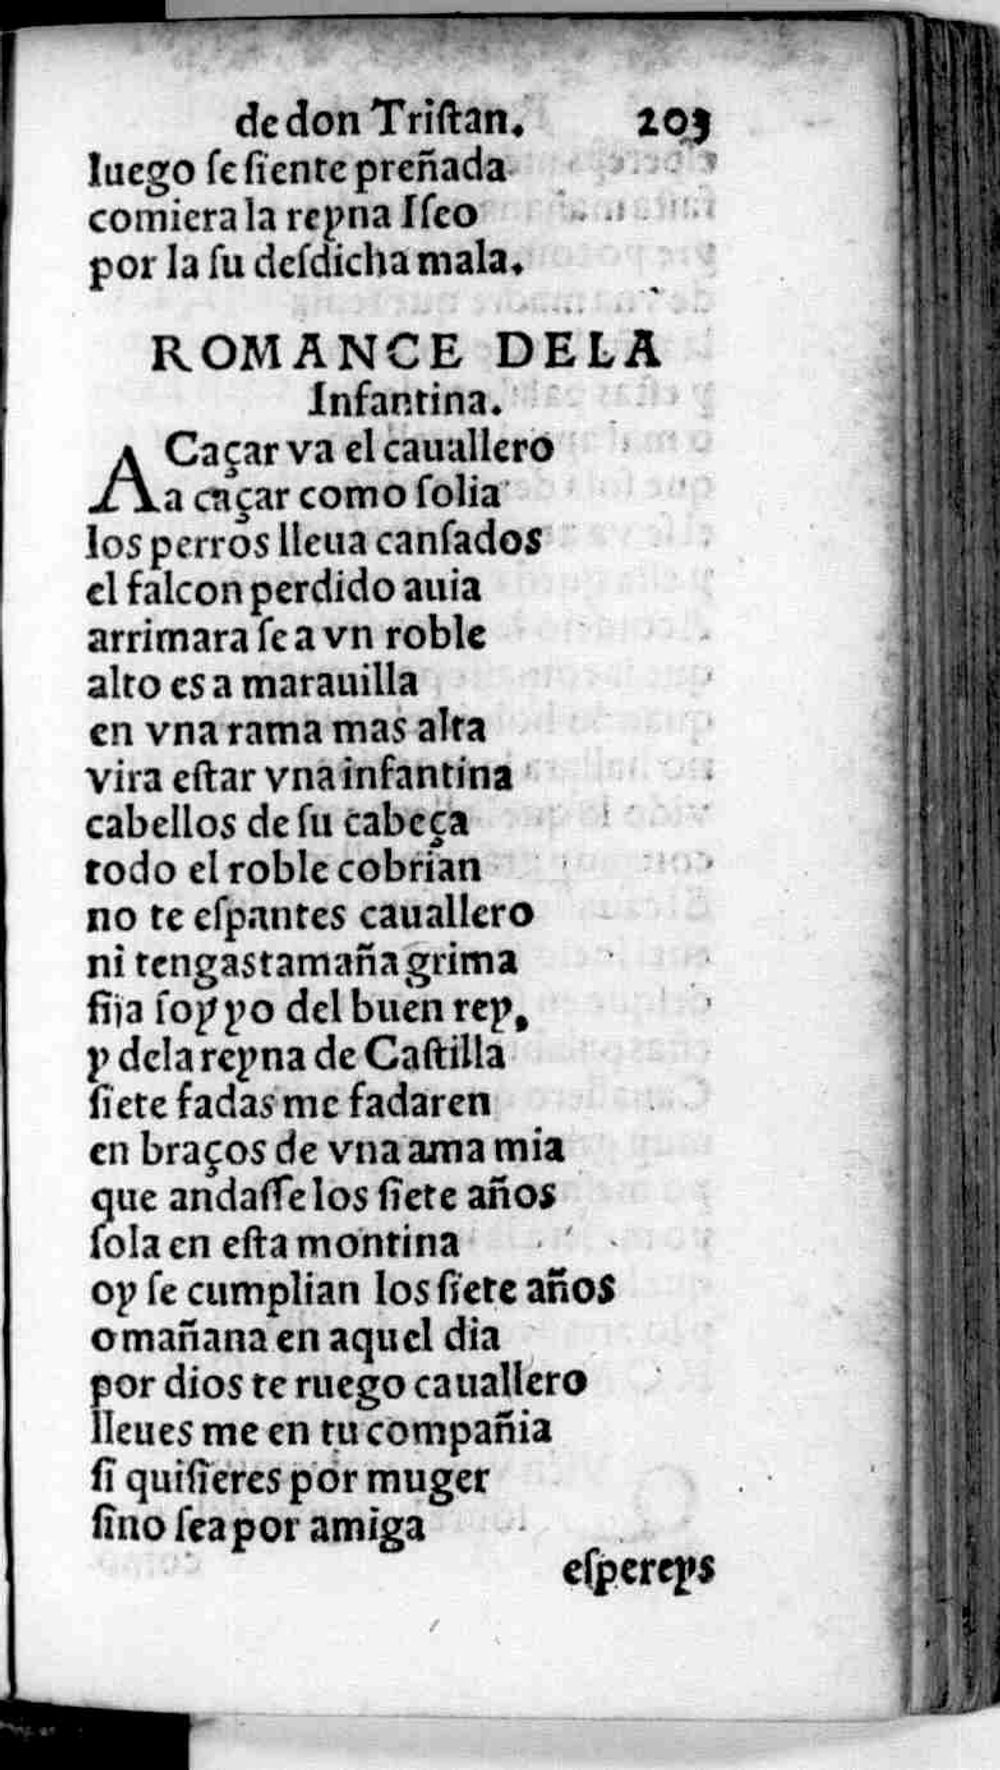 de don Triſtan. 203
luego ſe ſiente preñada
comiera la reyna Iſeo
por la ſu deſdicha mala.
ROMANCE DELA
Infantina.
A Caçar va el cauallero
a caçar como ſolia
los perros lleua canſados
el falcon perdido auia
arrimara ſe a vn roble
alto es a marauilla
en vna rama mas alta
vira eſtar vna infantina
cabellos de ſu cabeça
todo el roble cobrian
no te eſpantes cauallero
ni tengas tamaña grima
fija ſoy yo del buen rey,
y dela reyna de Caſtilla
ſiete fadas me fadaren
en braços de vna ama mia
que andaſſe los ſiete años
ſola en eſta montina
oy ſe cumplian los ſiete años
o mañana en aquel dia
por dios te ruego cauallero
lleues me en tu compañia
ſi quiſieres por muger
ſino ſea por amiga
eſpereys